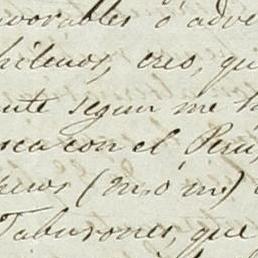 vorables ó adve
hilenos, creo, qu
nte segun me h
rca con el Perú,
esos (m, ó m)
Taburones, que